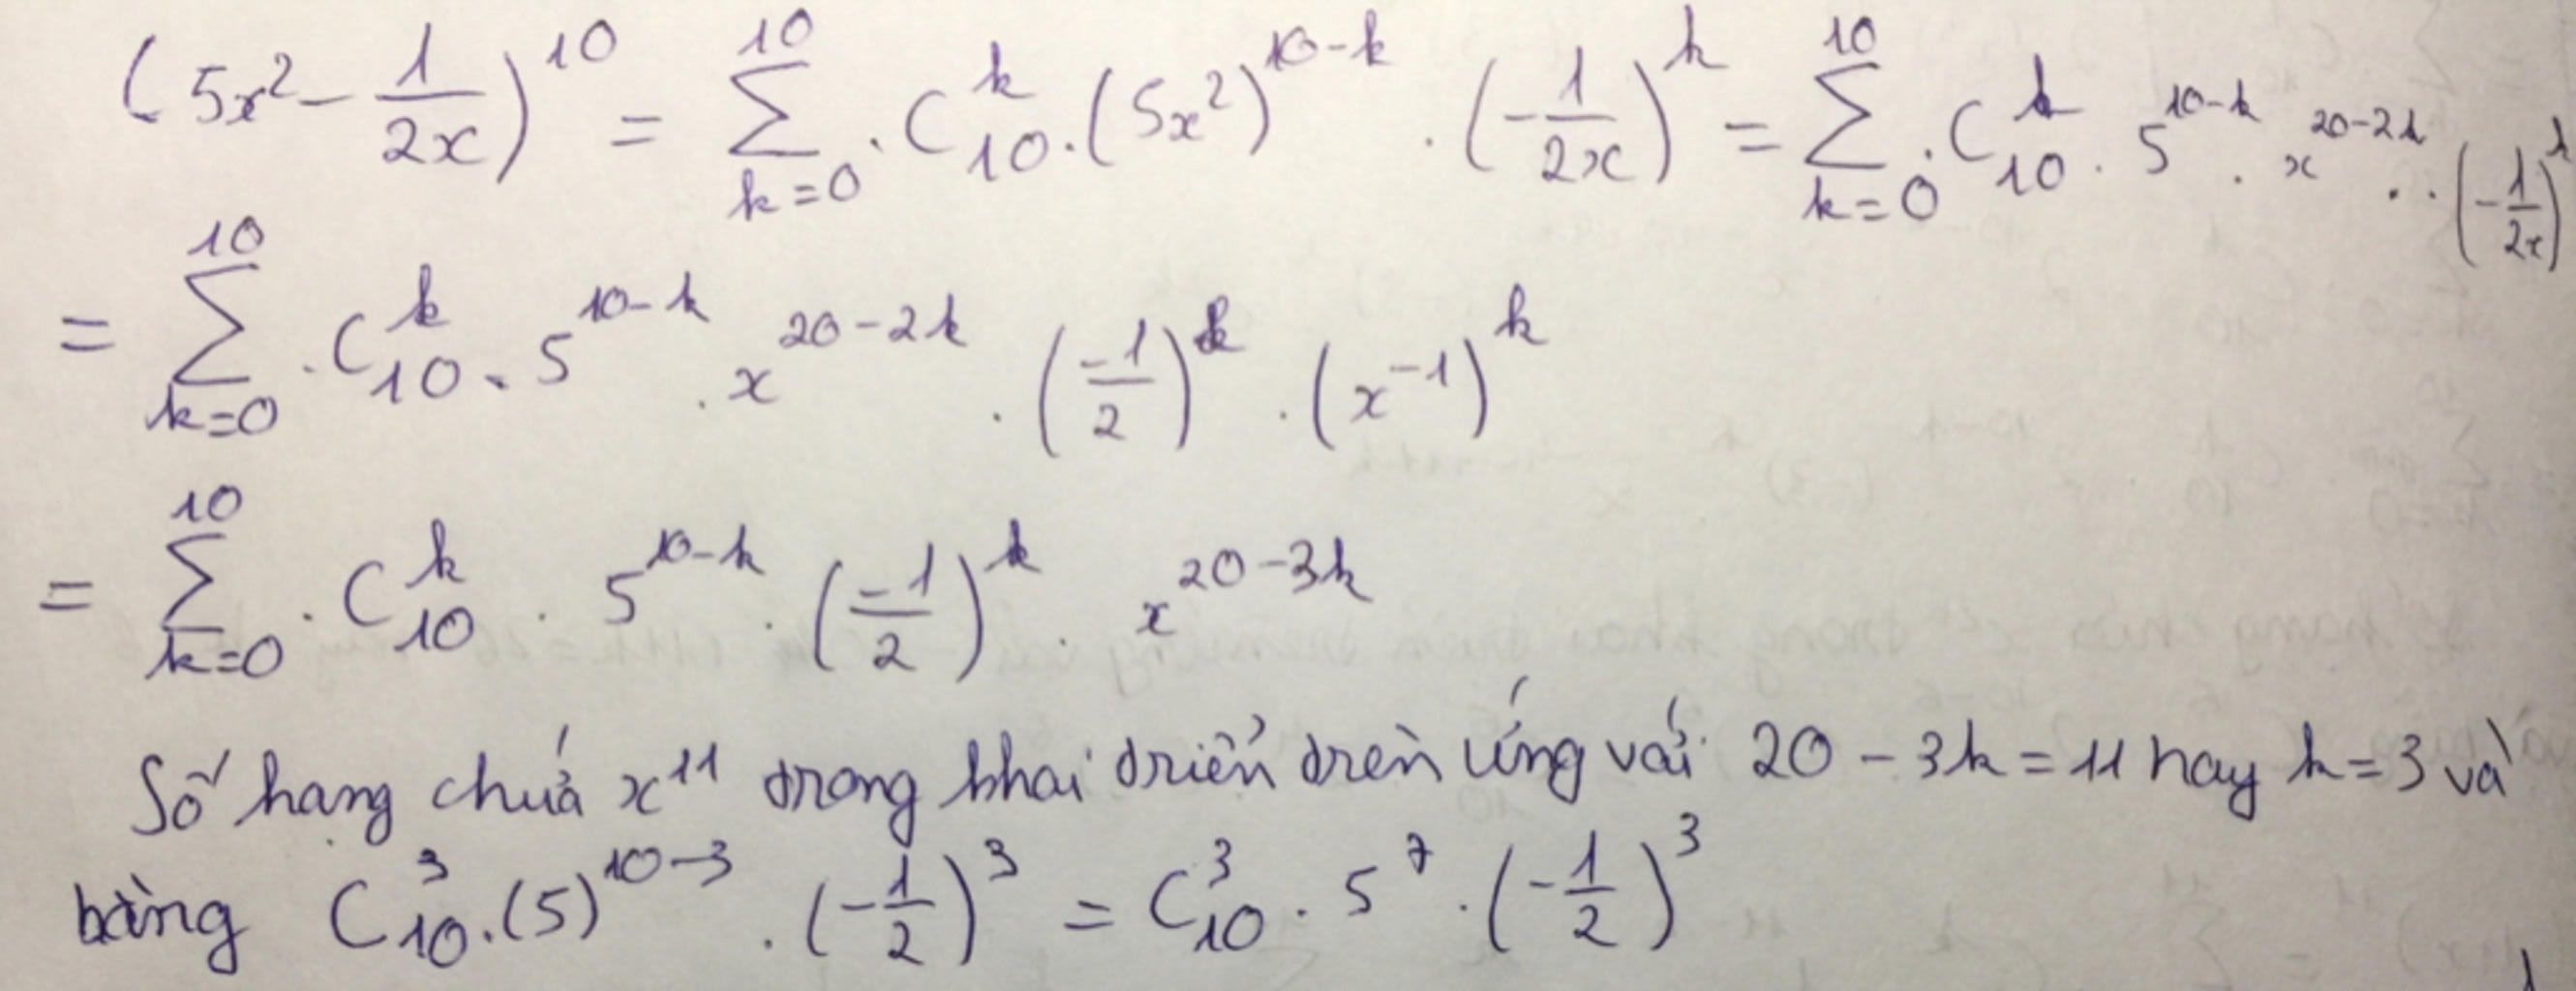 (5x² − 1/(2x))^10 = ∑_{k=0}^{10} . C_{10}^{k} . (5x²)^{10−k} . (−1/(2x))^k = ∑_{k=0}^{10} . C_{10}^{k} . 5^{10−k} . x^{20−2k} . . (−1/(2x))^k
= ∑_{k=0}^{10} . C_{10}^{k} . 5^{10−k} . x^{20−2k} . (−1/2)^k . (x^{−1})^k
= ∑_{k=0}^{10} . C_{10}^{k} . 5^{10−k} . (−1/2)^k . x^{20−3k}
Số hạng chứa x^{11} trong khai triển trên ứng với 20 − 3k = 11 hay k = 3 và
bằng C_{10}^{3} . (5)^{10−3} . (−1/2)^3 = C_{10}^{3} . 5^7 . (−1/2)^3